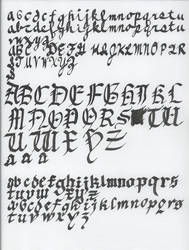 abcdefghijklmnopqrstu
abcdefghijklmnopqrstu
vwxyz
STUVWXYZ
ABCDEFGHIJKL
MNOPQRSTU
UWXYZ
a a a
abcdefghijklmnopqrs
tuvwxyz
abcdefghijklmnopqrs
tuvwxyz